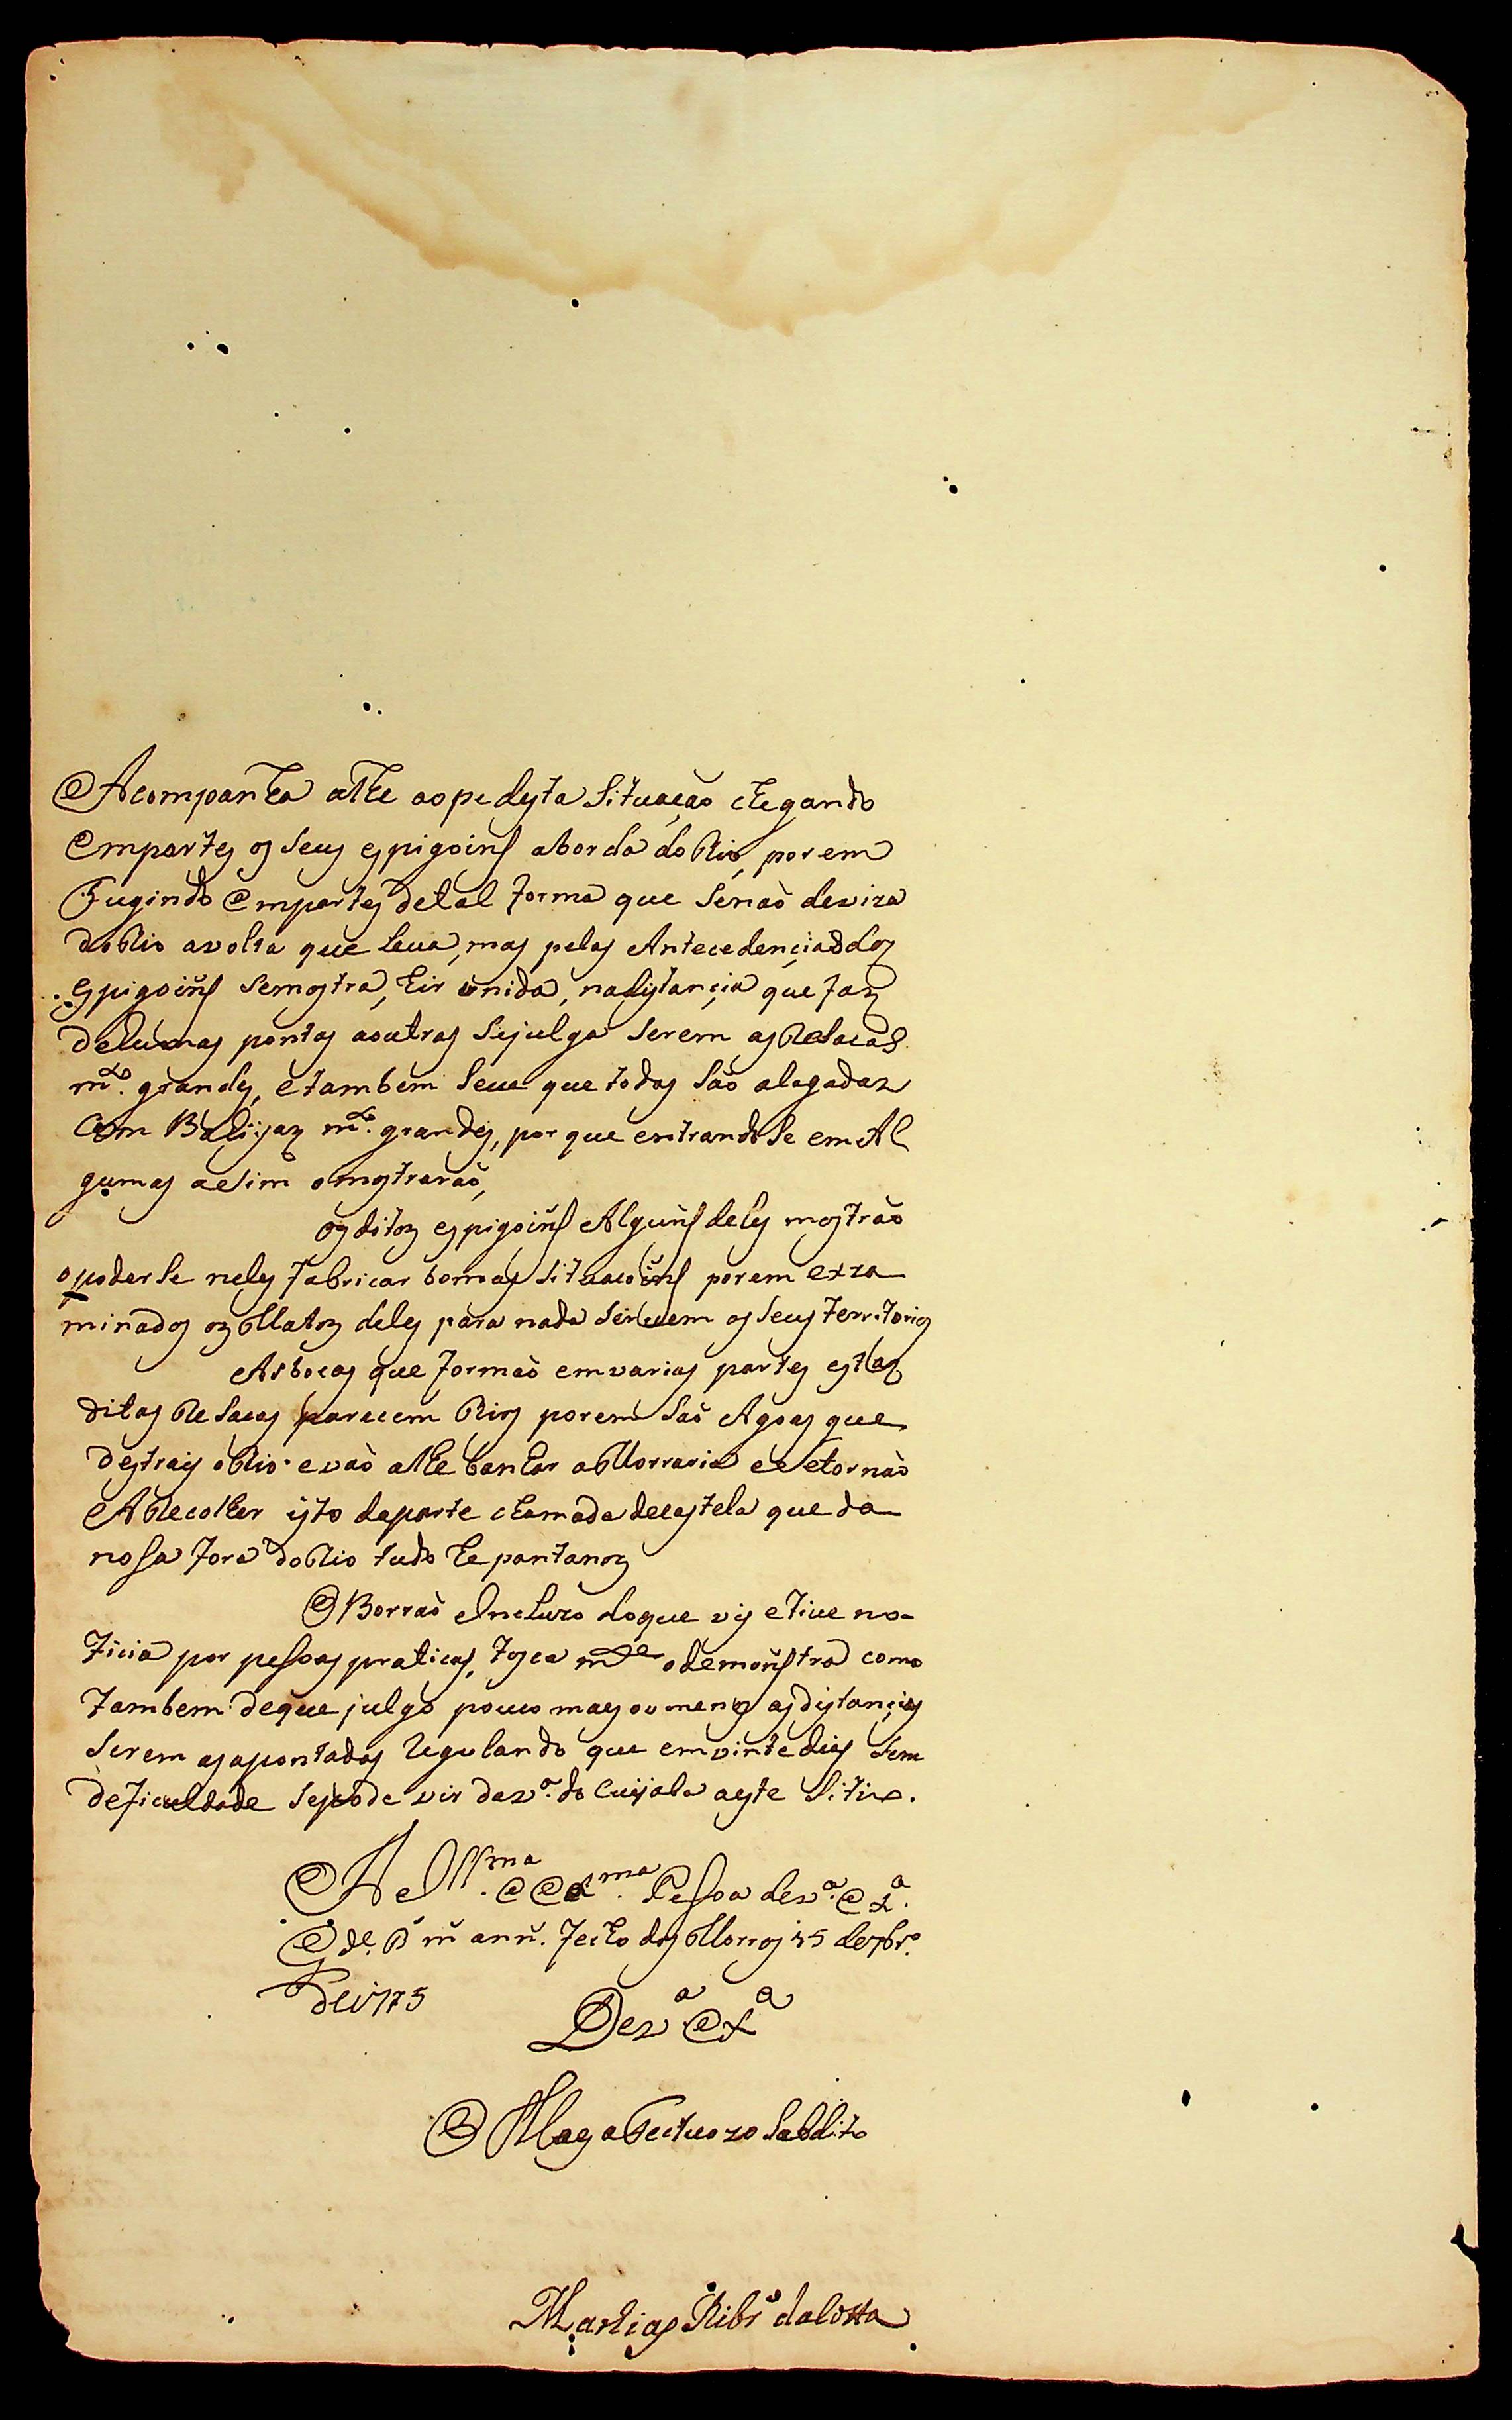 Acompanha athe aope desta Situação chegando
Empartes os Seus espigoins aborda do Rio, porem
Fugindo Empartes detal forma que Senaõ deviza
doRio avolta que leua, mas pelas Antecedençias dos
Espigoins Semostra, hir unida, nadistançia que faz
dehumas pontas aoutras Sejulga Serem as ReSacas
m.to grandes, etambem Seue que todas Saõ alagadas
Com Bahijas m.to grandes, por que entrandoSe em Al
gumas aSim omostraraõ,
os ditos espigoins Alguns deles mostraõ
opoderSe neles fabricar bomas Situacoins porem exza
minados os Matos deles para nada Seruem os Seus territorios
As bocas que formaõ emvarias partes estas
ditas ReSacas parecem Rios porem Saõ Agoas que
destrais oRio evaõ athe banhar aMorraria eSetornaõ
ARecolher isto daparte chamada decastela que da
nosa fora doRio tudo he pantanos
O Borraõ Incluzo doque vis etiue no-
ticia por pesoas praticas, tosca m.te odemonstra como
tambem deque julgo pouco mays ou menos asdistançias
Serem asapontadas Regulando que emvinte dias Sem
deficuldade Sepode vir dav.a do Cuijaba aeste Sitio.
A Ill.ma E Ex.ma Pesoa dev.a Ex.a
G.de D.s m. ann. Fecho dos Morros 15 de 7br.o
de 1775
Dev.a Ex.a
O Mais afectuozo Subdito
Mathias Ribr.o daCosta